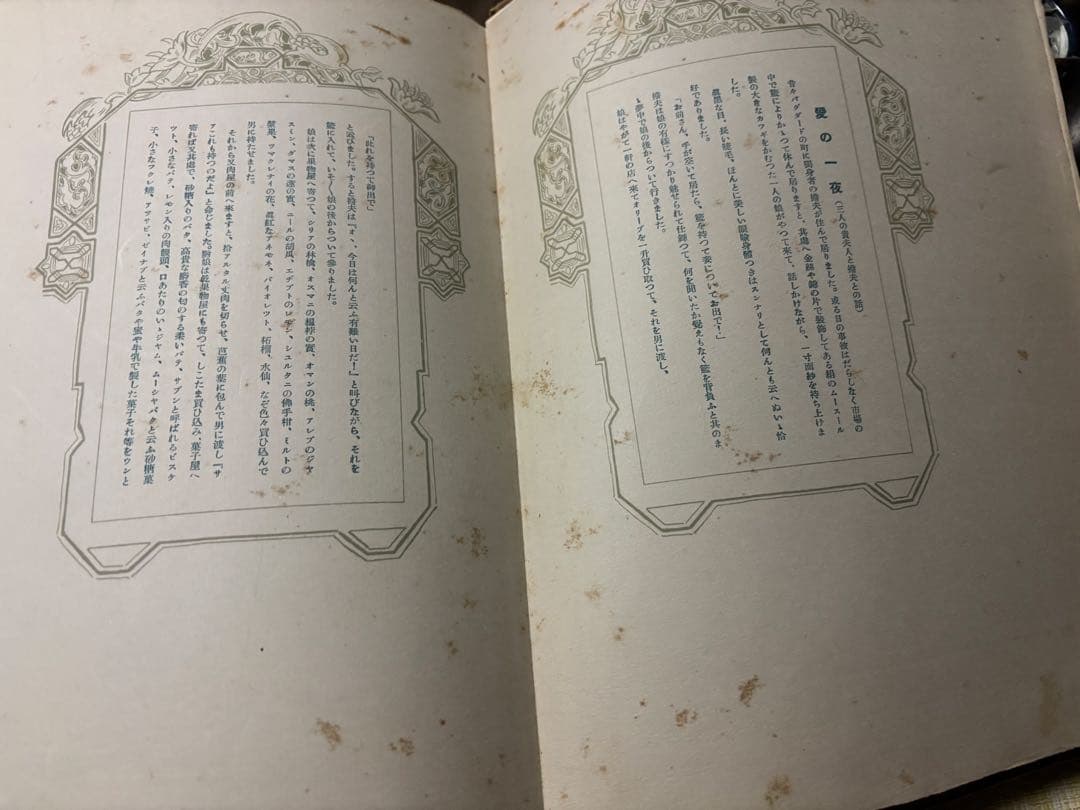 愛の一夜(三人の貴夫人と擔夫との話)
昔々バグダードの町に獨身者の擔夫が住んで居りました。或る日の事彼はだらしなく市場の
中で籠によりかゝつて休んで居りますと、其場へ金絲や錦の片で裝飾してある絹のムースール
製の大きなカツギをかむつた一人の娘がやつて來て、話しかけながら、一寸面紗を持ち上げま
した。
眞黑な目、長い睫毛、ほんとに美しい眼瞼身體つきはスンナリとして何んとも云へぬいゝ恰
好でありました。
「お前さん、手が空いて居たら、籠を持つて妾についてお出で!」
擔夫は娘の有樣にすつかり魅せられて仕舞つて、何を聞いたか覺えもなく籠を背負ふと其のま
ゝ夢中で娘の後からついて行きました。
娘はやがて一軒の店へ來てオリーブを一升買ひ取つて、それを男に渡し、
「此れを持つて御出で」
と云ひました。すると擔夫は『オヽ、今日は何んと云ふ有難い日だ!』と叫びながら、それを
籠に入れて、いそ〳〵娘の後からついて參りました。
娘は次に果物屋へ寄つて、シリアの林檎、オスマニの榲桲の實、オマンの桃、アレプのジヤ
スミン、ダマスの蓮の實、ニールの胡瓜、エヂプトのレモン、シユルタニの佛手柑、ミルトの
漿果、ツマクレナイの花、眞紅なアネモネ、バイオレツト、柘榴、水仙、なぞ色々買ひ込んで
男に持たせました。
それから又肉屋の前へ來ますと、拾アルタル丈肉を切らせ、芭蕉の葉に包んで男に渡し『サ
アこれも持つのだよ』と命じました。娘は乾果物屋にも寄つて、しこたま買ひ込み、菓子屋へ
寄れば又其處で、砂糖入りのバタ、高貴な麝香の匂のする柔いパテ、サブンと呼ばれるビスケ
ツト、小さなパテ、レモン入りの肉饅頭、口あたりのいゝジャム、ムーシャバクと云ふ砂糖菓
子、小さなフクレ燒、ゼイナブと云ふバタや蜜や牛乳で製した菓子それ等をウンと